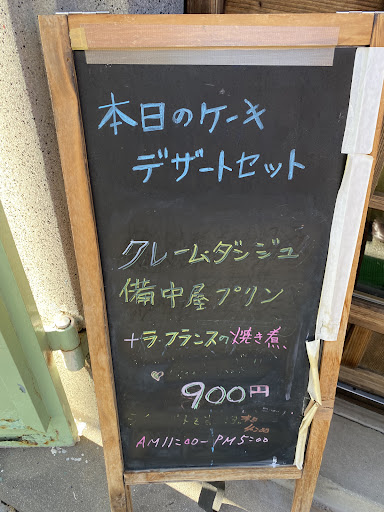 本日のケーキ
デザートセット
クレームダンジュ
備中屋プリン
+ラ・フランスの焼き煮
900円
AM11:00-PM5:00